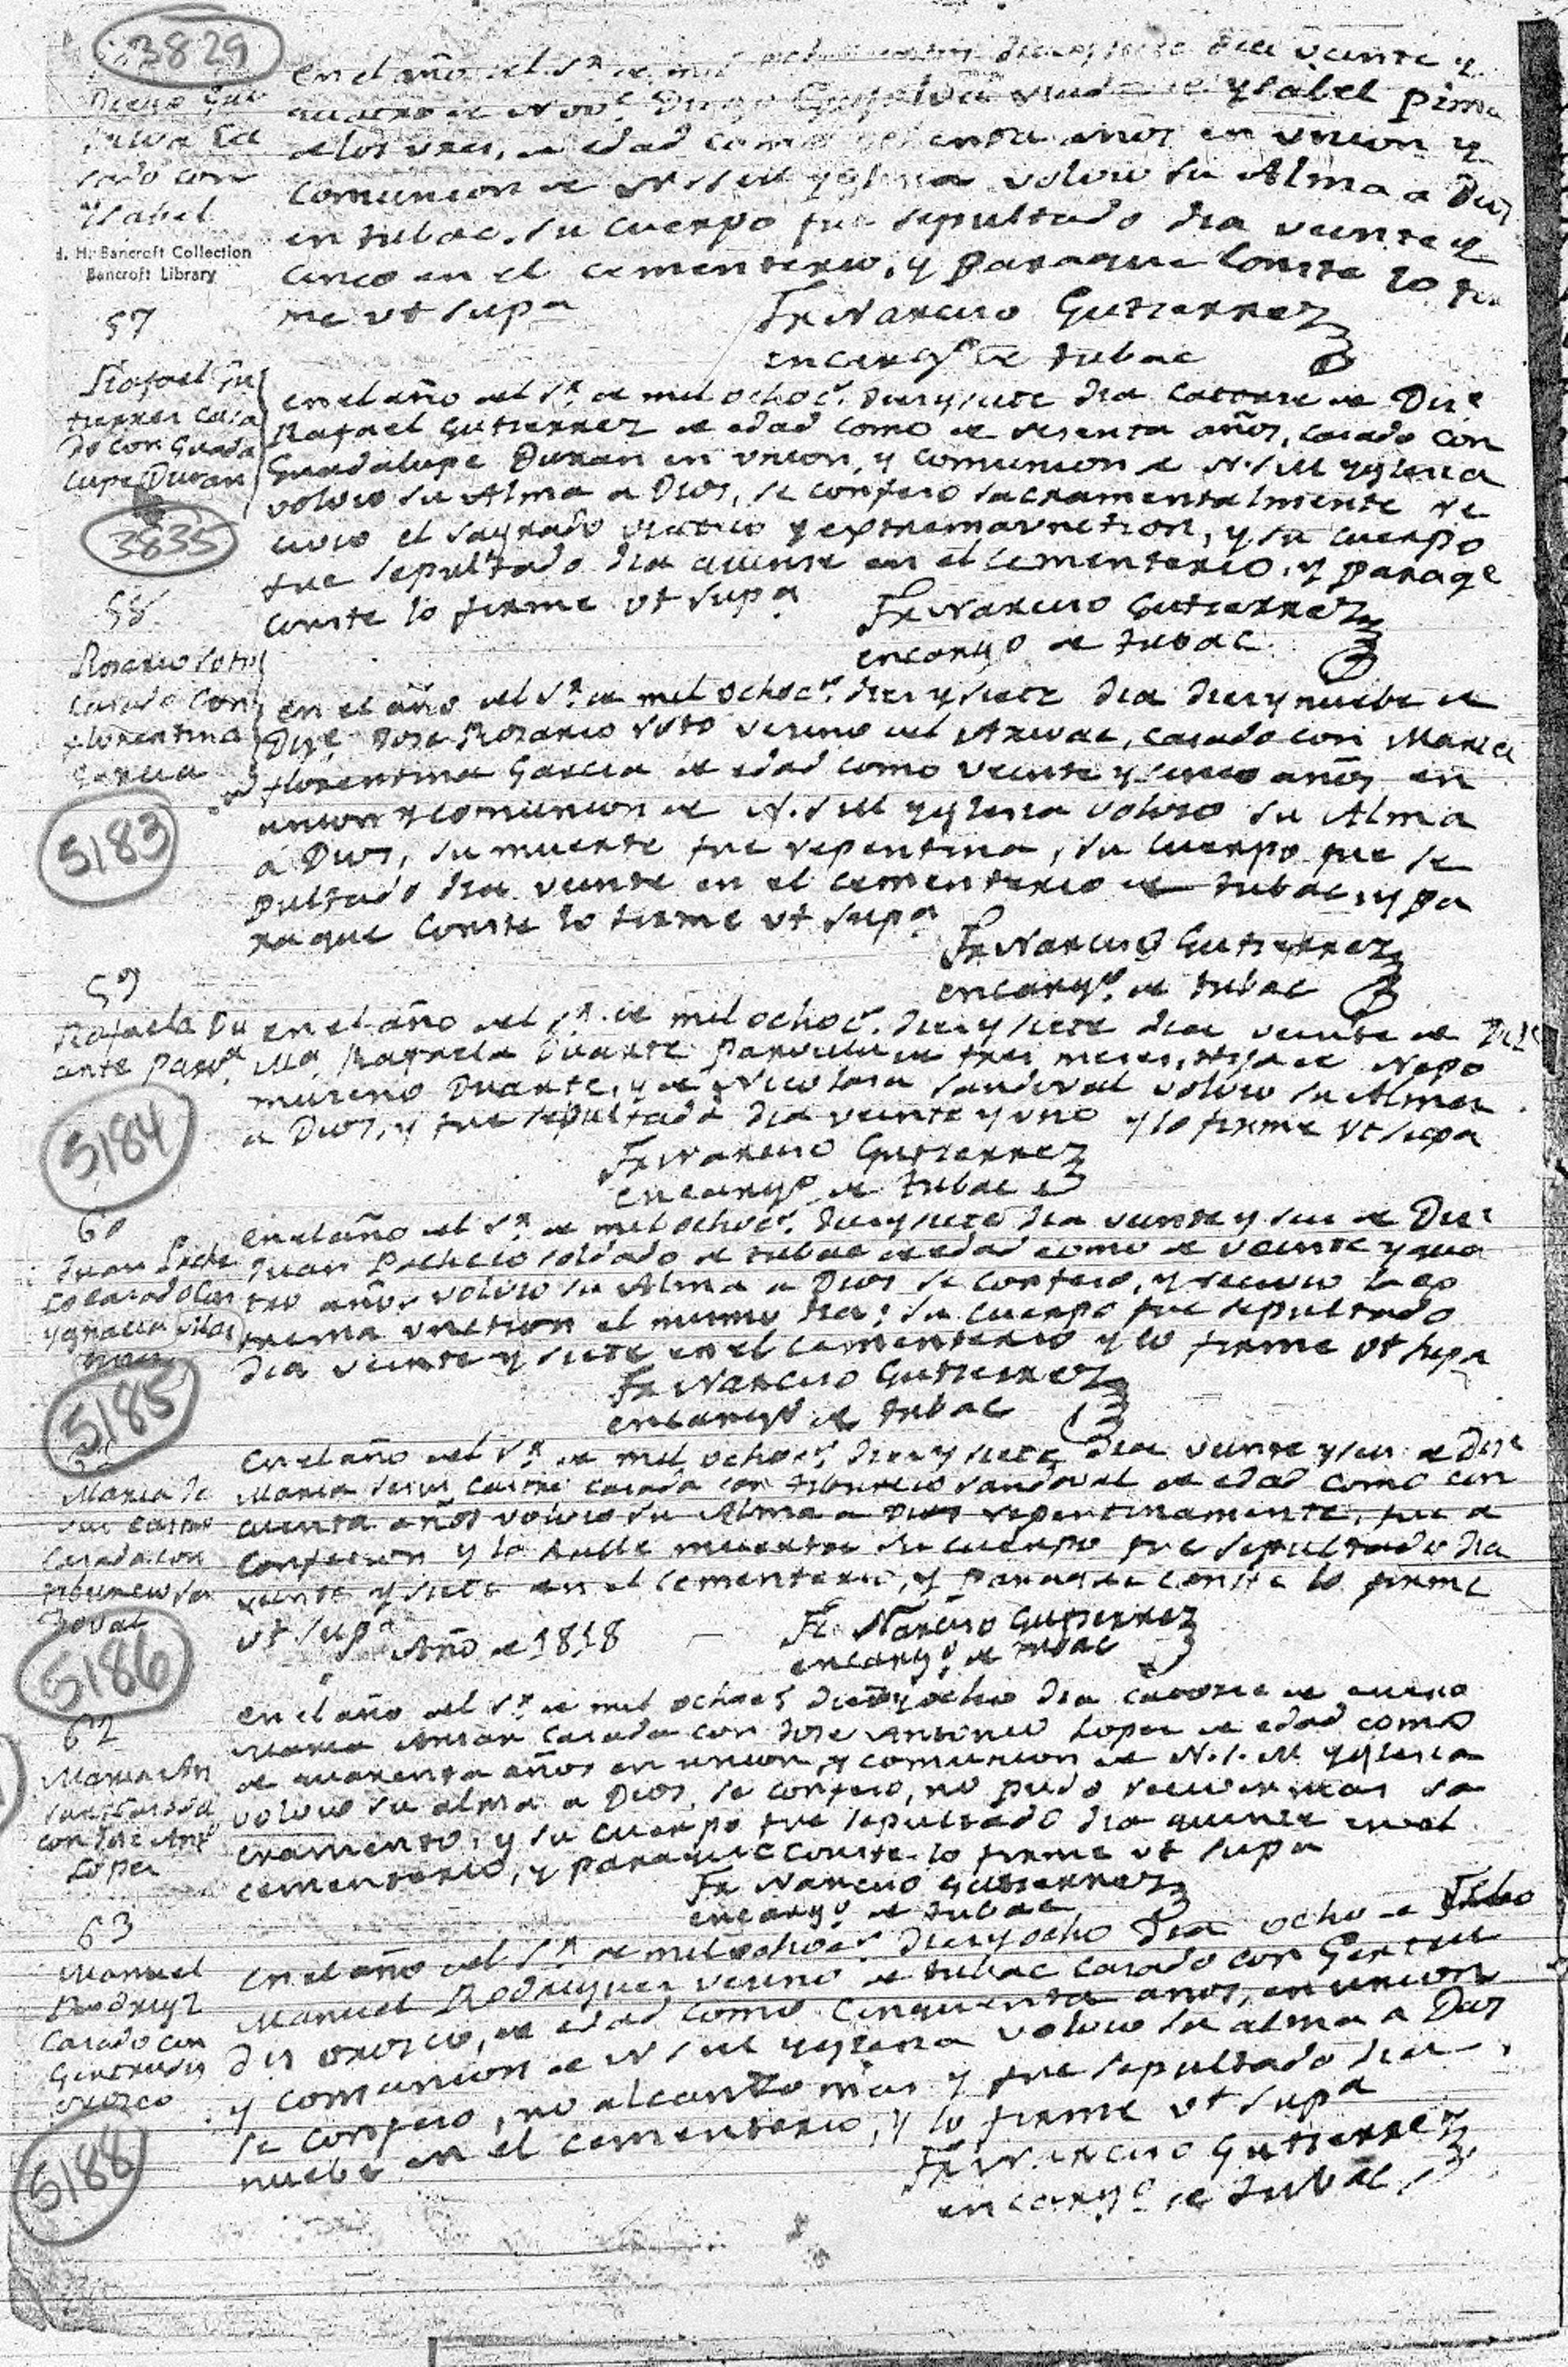 3829
en el año del Sr. de mil
veinte y
quatro de Nove. Diego
Ysabel pima
de edad como
años en union y
comunion de N. S. M. Yglesia volvio su Alma a Dios
en tubac. su cuerpo fue sepultado dia veinte y
cinco en el cementerio, y paraque conste lo fir
me ut supa
Fr Narciso Gutierrez
encargo. de tubac
casado con
Ysabel
H. H. Bancroft Collection
Bancroft Library
57
Rafael Gu
tierrez casa
do con Guada
lupe Duran
3835
en el año del Sr. de mil ochocs. diez y siete dia catorse de Dize
Rafael Gutierrez de edad como de sesenta años, casado con
Guadalupe Duran en union, y comunion de N. S. M Yglesia
volvio su Alma a Dios, se confeso sacramentalmente re
civio el sagrado viatico y extremaunction, y su cuerpo
fue sepultado dia quinse en el cementerio, y paraqe
conste lo firme ut supa
Fr Narciso Gutierrez
encargo de tubac
58
Rosario Soto
casado con
florentina
Garcia
5183
en el año del Sr. de mil ochocs. diez y siete dia diez y nuebe de
Dize Jose Rosario Soto vesino del Arivac, casado con Maria
florentina Garcia de edad como veinte y sinco años en
union y comunion de N. S M Yglesia volvio su Alma
a Dios, su muerte fue repentina, su cuerpo fue se
pultado dia veinte en el cementerio de tubac, y pa
raque conste lo firme ut supa
Fr Narciso Gutierrez
encargo. de tubac
59
Rafaela Du
arte parva.
5184
en el año del Sr. de mil ochocs. diez y siete dia veinte de Dize
Ma. Rafaela Duarte parvula de tres meses, hija de Nepo
museno Duarte, y de Nicolasa Sandoval volvio su Alma
a Dios, y fue sepultada dia veinte y uno y lo firme ut supa
Fr Narciso Gutierrez
encargo. de tubac
60
Juan Pache
co casado con
Ygnacia
5185
en el año del Sr. de mil ochocs. diez y siete dia veinte y seis de Dize
Juan Pacheco soldado de tubac de edad como de veinte y qua
tro años volvio su Alma a Dios se confeso, y recivio la es
trema unction el mismo dia; su cuerpo fue sepultado
dia veinte y siete en el cementerio y lo firme ut supa
Fr Narciso Gutierrez
encargo de tubac
61
Maria Je
sus Castro
Casada con
tiburcio San
doval
5186
en el año del Sr. de mil ochocs. diez y siete dia veinte y seis de Dize
Maria Jesus Castro casada con tiburcio Sandoval de edad como cin
cuenta años volvio su Alma a Dios repentinamente, fue a
confesion y la halle muerta su cuerpo fue sepultado dia
veinte y siete en el cementerio, y paraque conste lo firme
ut supa
Fr. Narciso Gutierrez
encargo. de tubac
Año de 1818
62
casada
con Jose Anto
Lopez
en el año del Sr. de mil ochocs diez y ocho dia catorse de enero
Maria casada con Jose Antonio Lopez de edad como
de quarenta años en union, y comunion de N. S. M Yglesia
volvio su alma a Dios, se confeso, no pudo recivir mas sa
cramento, y su cuerpo fue sepultado dia quinse en el
cementerio, y paraque conste lo firme ut supa
Fr Narciso Gutierrez
encargo. de tubac
63
Manuel
Rodrigz
casado con
Gertrudis
orosco
5188
en el año del Sr. de mil ochocs. diez y ocho dia ocho de Febo
Manuel Rodriguez vesino de tubac casado con Gertru
dis orosco, de edad como cinquenta años, en union
y comunion de N S M Yglesia volvio su alma a Dios
se confeso, no alcanzo mas y fue sepultado dia
nuebe en el cementerio, y lo firme ut supa
Fr Narciso Gutierrez
encargo de tubac